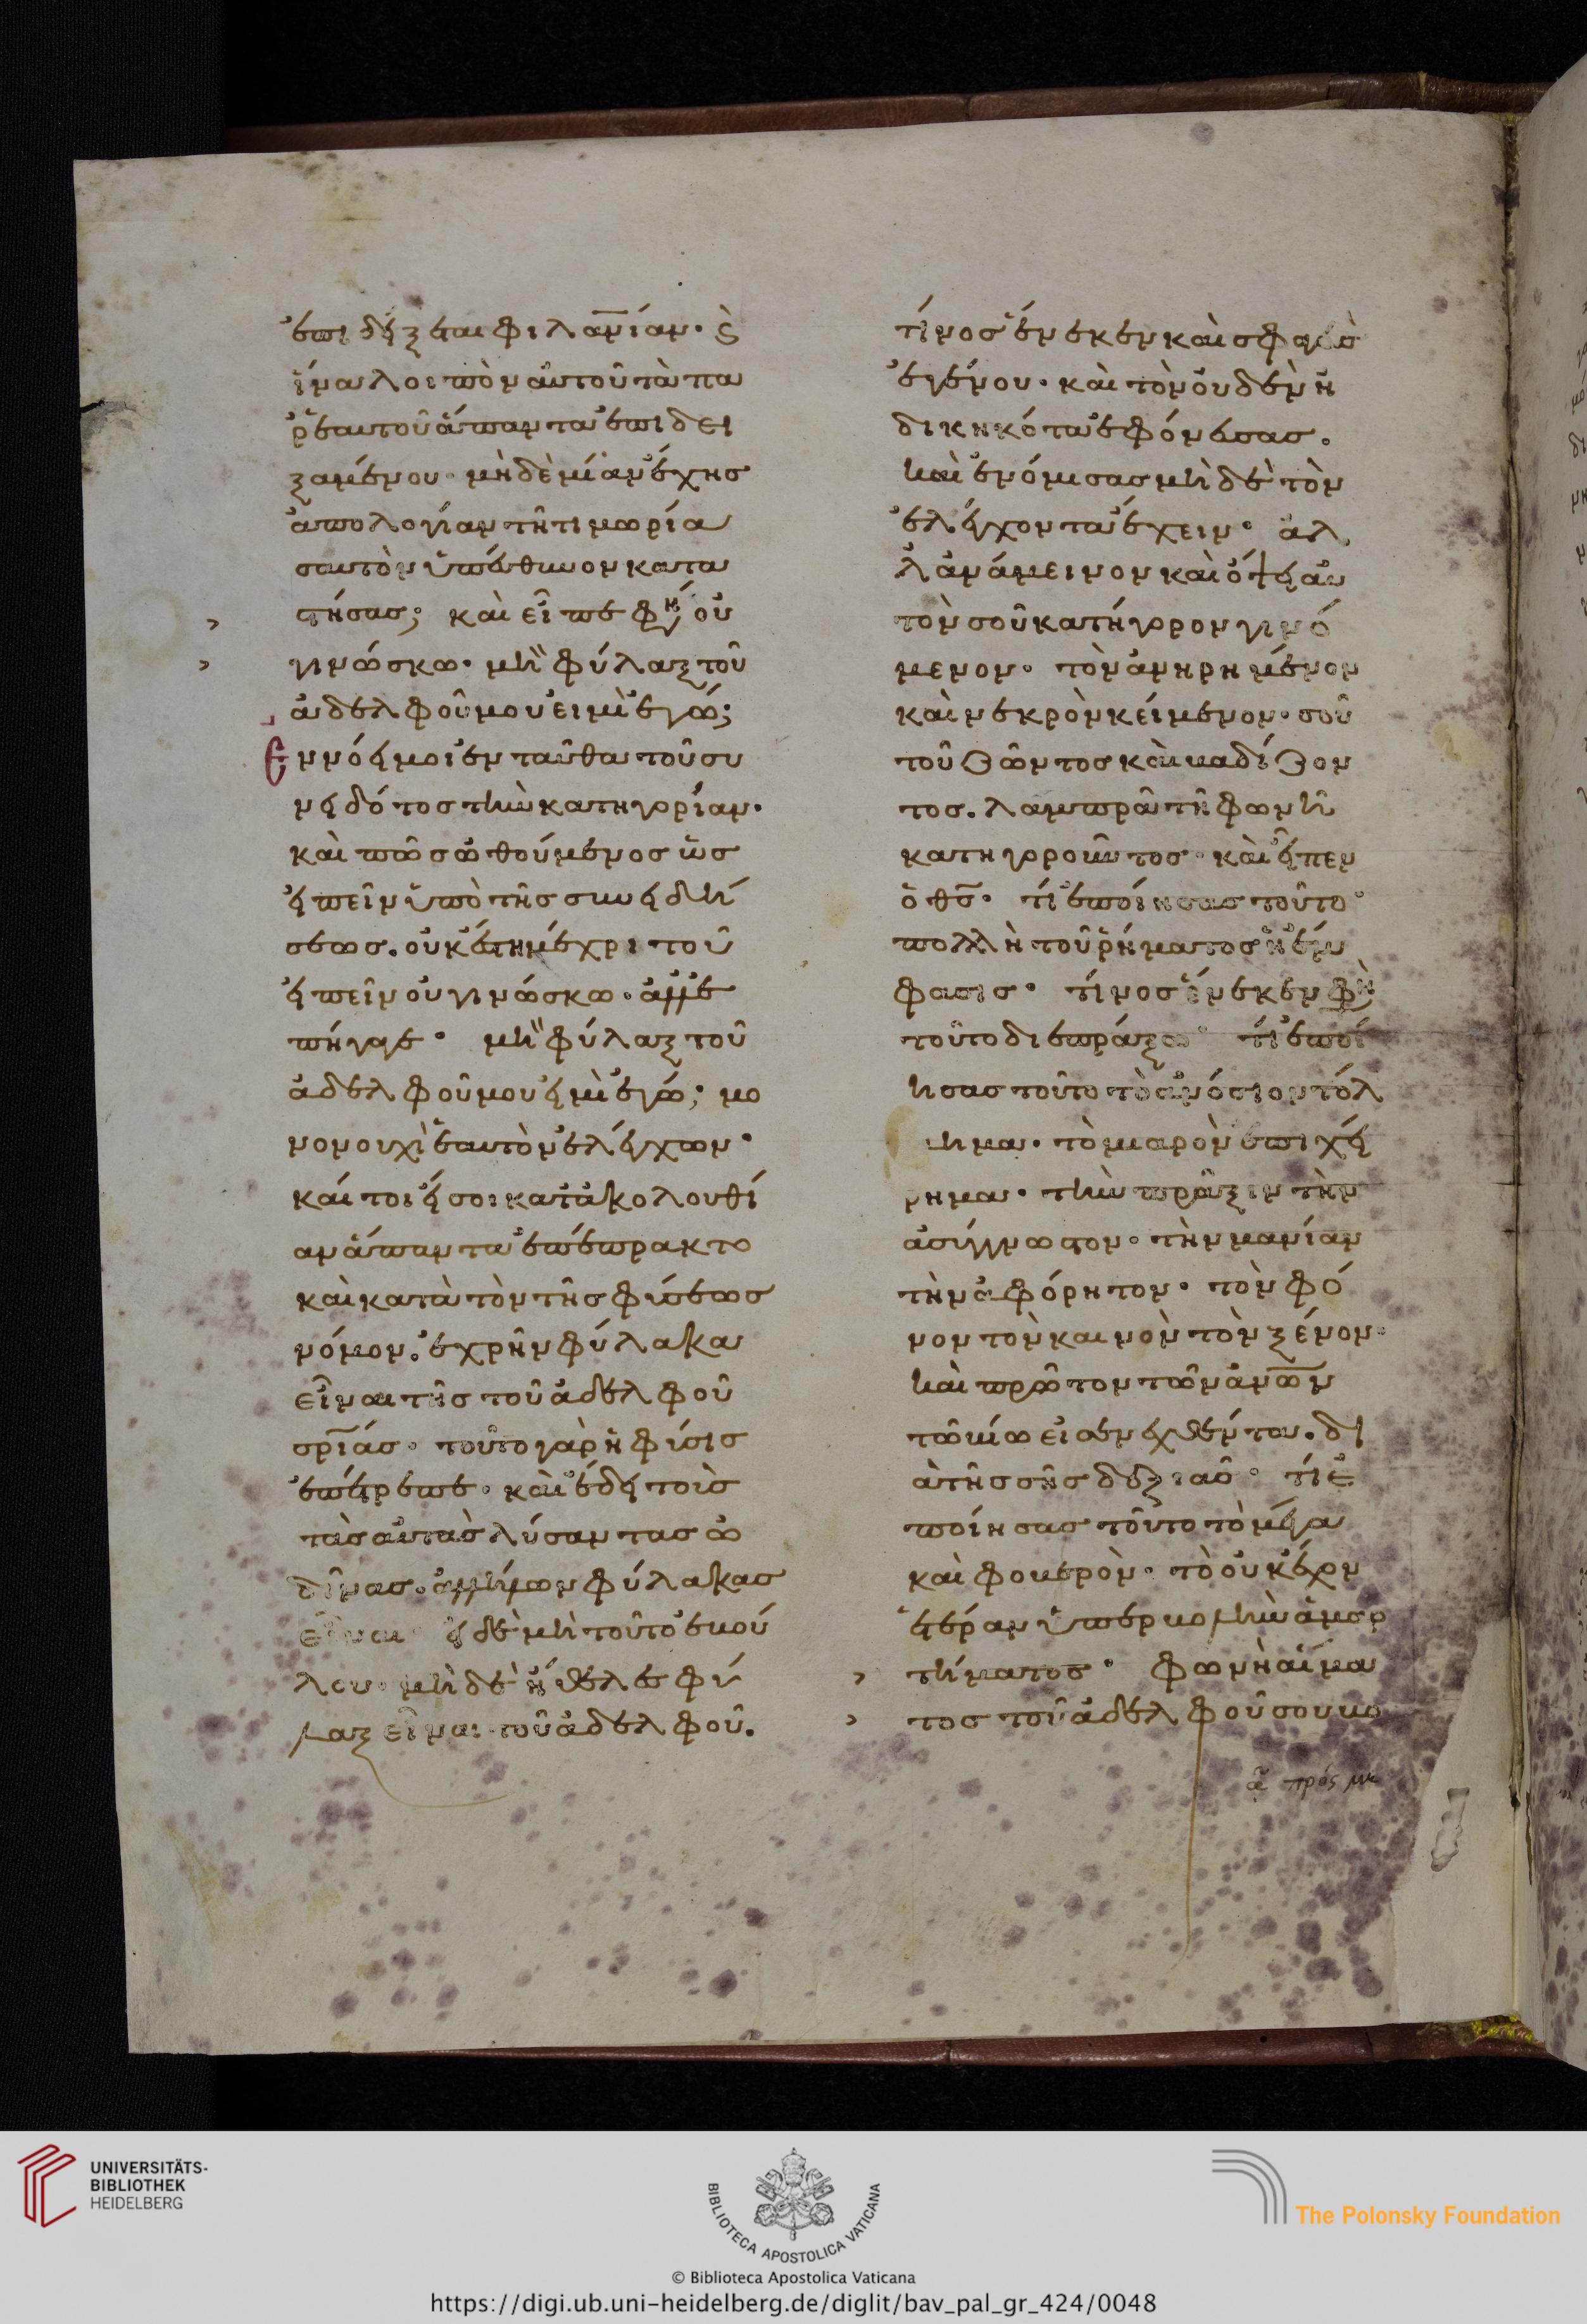 ἐπιδείξεται φιλανίαν· ϛ
ἵνα λοιπὸν αὐτοῦ τὰ πα
ρ' ἑαυτοῦ ἅπαντα ἐπιδει
ξαμένου· μηδεμίαν ἔχησ
ἀπολογίαν τῆ τιμωρία
σαυτὸν ὑπεύθυνον κατα
στήσασ; καὶ εἶπε φη οὐ
γινώσκω· μὴ φύλαξ τοῦ
ἀδελφοῦ μου εἰμὶ ἐγώ;
Εννόει μοι ἐνταῦθα τοῦ συ
νειδότοσ τὴν κατηγορίαν·
καὶ πῶσ ὠθούμενοσ ὡσ
εἰπεῖν ὑπὸ τῆσ συνειδή
σεωσ. οὐκ ἔστη μέχρι τοῦ
εἰπεῖν οὐ γινώσκω· ἀλλ' ἐ
πήγαγε· μὴ φύλαξ τοῦ
ἀδελφοῦ μου εἰμὶ ἐγώ; μο
νονουχὶ ἑαυτὸν ἐλέγχων·
καίτοι εἴ σοι κατ' ἀκολουθί
αν ἅπαντα ἐπέπρακτο
καὶ κατὰ τὸν τῆσ φύσεωσ
νόμον. ἐχρῆν φύλακα
εἶναι τῆσ τοῦ ἀδελφοῦ
σρίασ· τοῦτο γὰρ ἡ φύσισ
ἐπέτρεπε· καὶ ἔδει τοὺσ
τὰσ αὐτὰσ λύσαντασ ὠ
δῖνασ. ἀλλήλων φύλακασ
εἶναι· εἰ δὲ μὴ τοῦτο ἐβού
λου· μὴ δὲ ἤθελεσ φύ
λαξ εἶναι τοῦ ἀδελφοῦ.
τίνοσ ἕνεκεν καὶ σφαγεὺσ
ἐγένου· καὶ τὸν οὐδὲν ἠ
δικηκότα ἐφόνευσασ.
καὶ ἐνόμισασ μὴ δὲ τὸν
ἐλέγχοντα ἔχειν· ἀλ
λ' ἀνάμεινον καὶ ὄψει αὐ
τὸν σοῦ κατήγορον γινό
μενον· τὸν ἀνηρημένον
καὶ νεκρὸν κείμενον· σοῦ
τοῦ ζῶντοσ καὶ βαδίζον
τοσ. λαμπρᾶ τῆ φωνῆ
κατηγοροῦντοσ· καὶ εἶπεν
ὁ θσ· τί ἐποίησασ τοῦτο·
πολλὴ τοῦ ῥήματοσ ἡ ἔμ
φασισ· τίνοσ ἕνεκεν φη
τοῦτο διεπράξω· τί ἐποί
ησασ τοῦτο τὸ ἀνόσιον τόλ
μημα· τὸ μιαρὸν ἐπιχεί
ρημα· τὴν πρᾶξιν τὴν
ἀσύγγνωστον· τὴν μανίαν
τὴν ἀφόρητον· τὸν φό
νον τὸν καινὸν τὸν ξένον·
καὶ πρῶτον τῶν ἀνων
τῶ βίω εἰσενεχθέντα. δι
ὰ τῆσ σῆσ δεξιᾶσ· τί ἐ
ποίησασ τοῦτο τὸ μέγα
καὶ φοβερὸν· τὸ οὐκ ἔχον
ἑτέραν ὑπερβολὴν ἁμαρ
τήματοσ· φωνὴ αἵμα
τοσ τοῦ ἀδελφοῦ σου βο
UNIVERSITÄTS-
BIBLIOTHEK
HEIDELBERG
BIBLIOTECA APOSTOLICA VATICANA
The Polonsky Foundation
© Biblioteca Apostolica Vaticana
https://digi.ub.uni-heidelberg.de/diglit/bav_pal_gr_424/0048